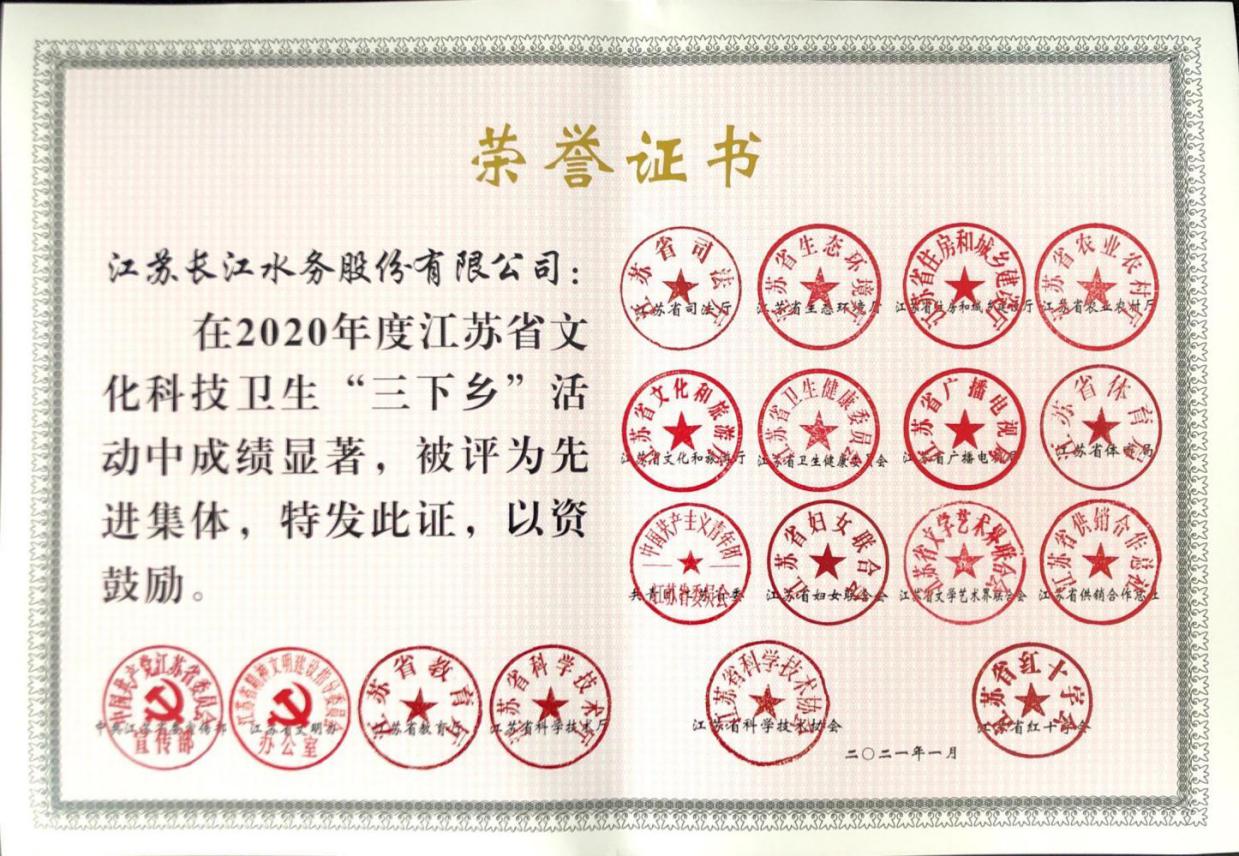 荣誉证书
江苏长江水务股份有限公司：
在2020年度江苏省文
化科技卫生“三下乡”活
动中成绩显著，被评为先
进集体，特发此证，以资
鼓励。
江苏省司法厅
江苏省司法厅
江苏省生态环境厅
江苏省生态环境厅
江苏省住房和城乡建设厅
江苏省住房和城乡建设厅
江苏省农业农村厅
江苏省农业农村厅
江苏省文化和旅游厅
江苏省文化和旅游厅
江苏省卫生健康委员会
江苏省卫生健康委员会
江苏省广播电视局
江苏省广播电视局
江苏省体育局
江苏省体育局
中国共产主义青年团
江苏省委员会
共青团江苏省委
江苏省妇女联合会
江苏省妇女联合会
江苏省文学艺术界联合会
江苏省文学艺术界联合会
江苏省供销合作总社
江苏省供销合作总社
中国共产党江苏省委员会
宣传部
中共江苏省委宣传部
江苏省精神文明建设指导委员会
办公室
江苏省文明办
江苏省教育厅
江苏省教育厅
江苏省科学技术厅
江苏省科学技术厅
江苏省科学技术协会
江苏省科学技术协会
江苏省红十字会
江苏省红十字会
二〇二一年一月